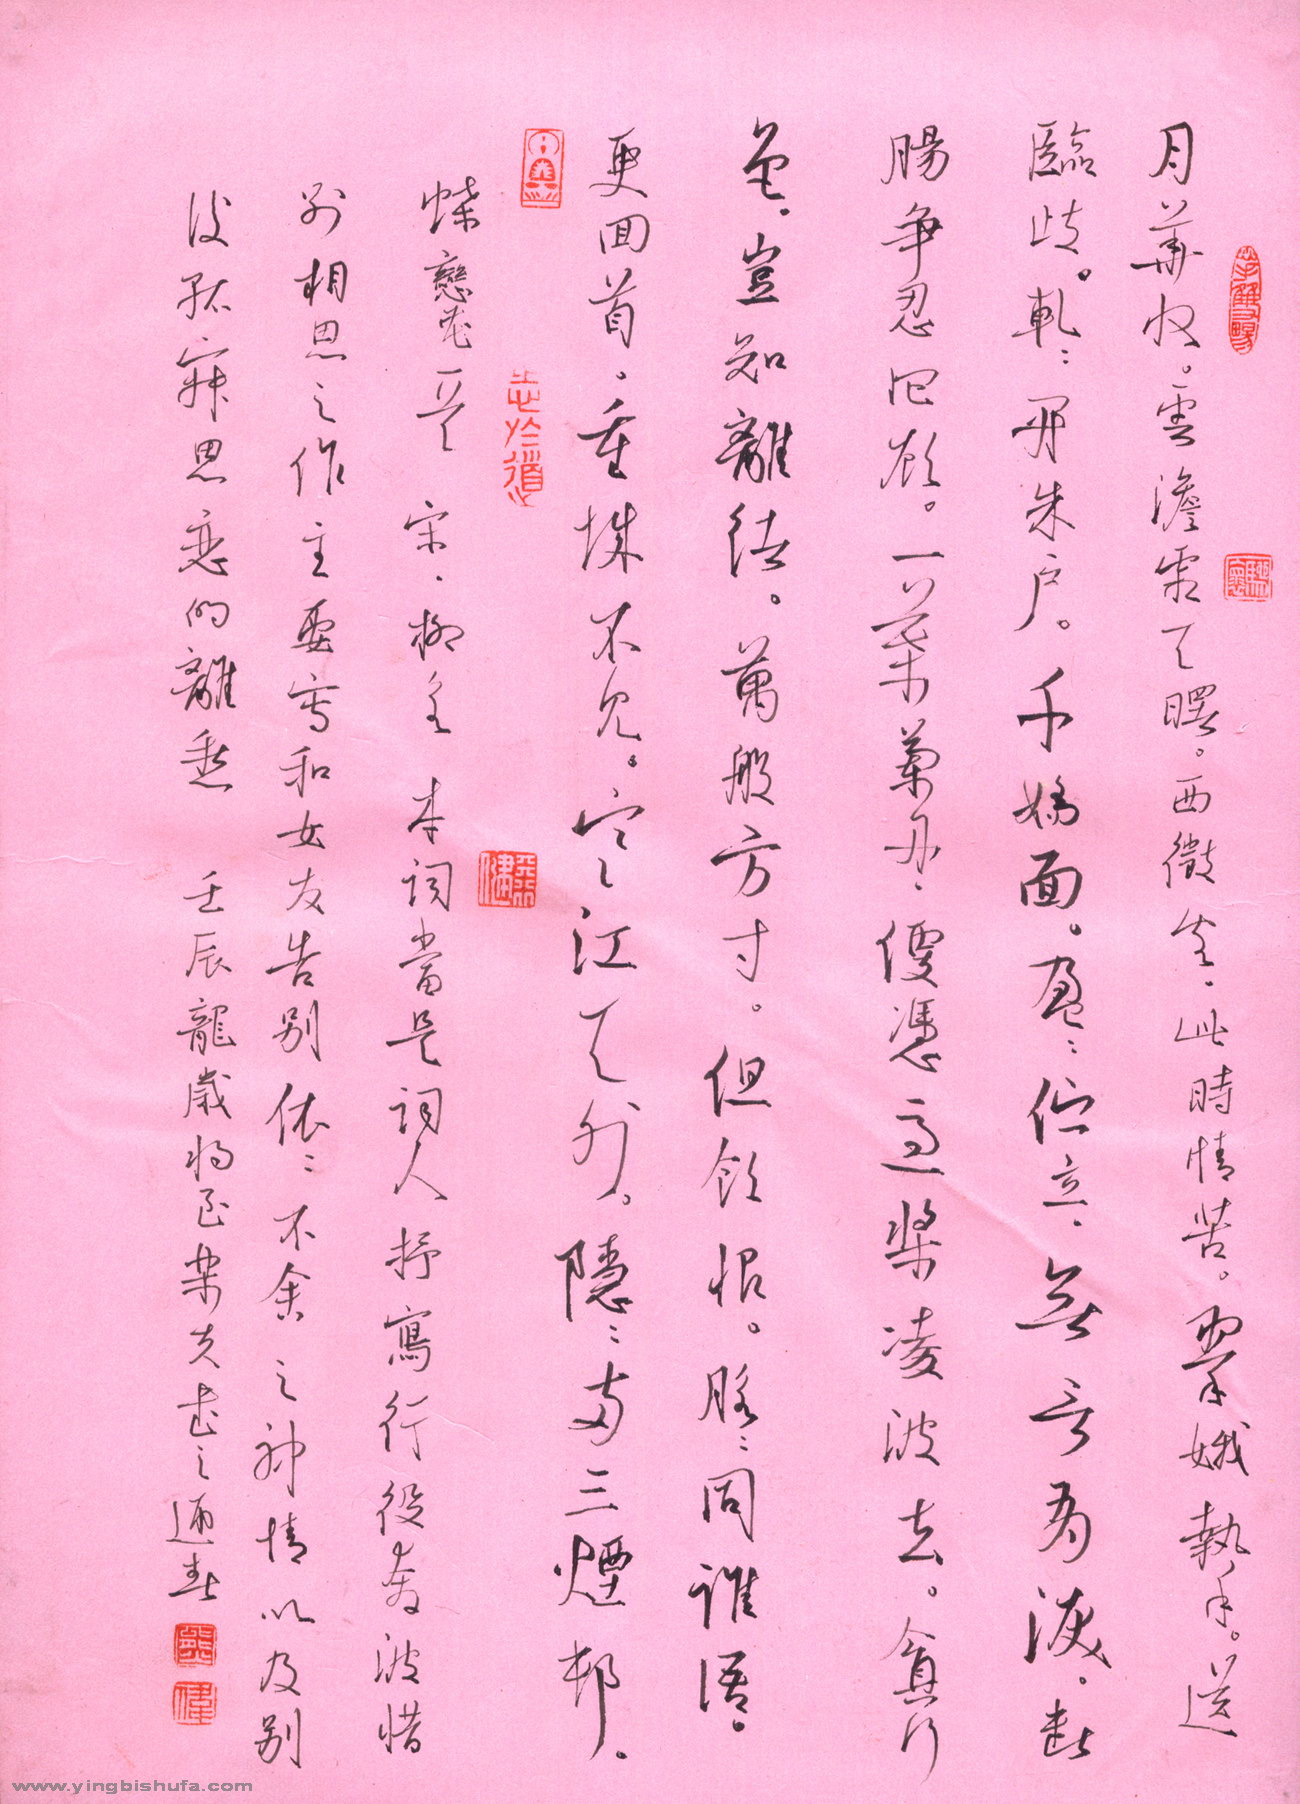 月華收。雲澹霜天曙。西徵客、此時情苦。翠娥執手。送
臨歧。軋〻開朱戶。千嬌面。盈〻佇立、無言有淚。斷
腸爭忍回顧。一葉蘭舟、便憑急槳凌波去。貪行
色、豈知離緒。萬般方寸。但飲恨。脈〻同誰語。
更回首。重城不見。寒江天外。隱〻兩三煙樹。
蝶戀花 宋·柳永 本詞當是詞人抒寫行役奔波惜
别相思之作主要寫和女友告别依〻不舍之神情以及别
後孤寂思恋的離愁 壬辰龍歲將至 書之
志於道
熊健
www.yingbishufa.com